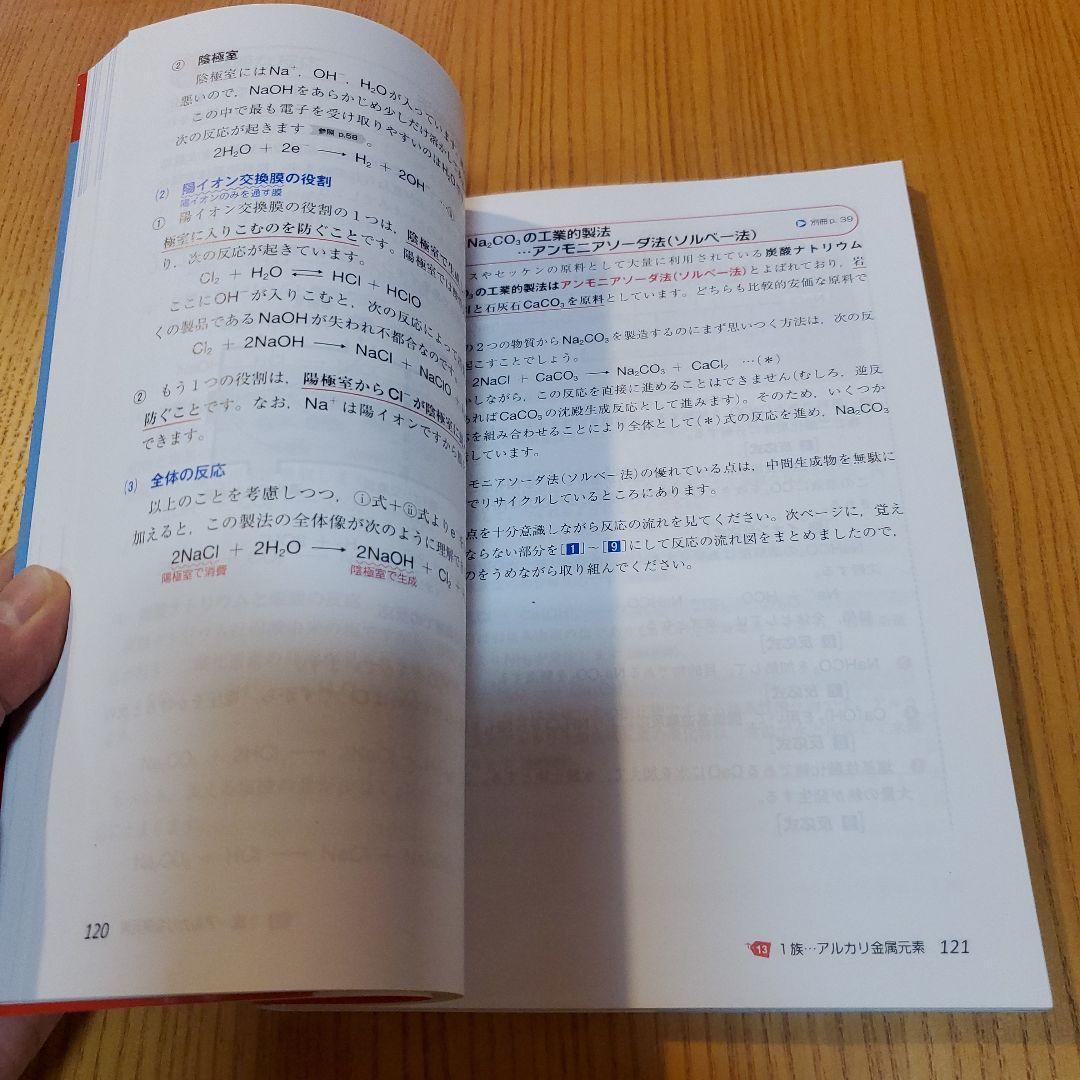 ② 陰極室
陰極室にはNa⁺,OH⁻,H₂Oが入っています
悪いので,NaOHをあらかじめ少しだけ溶かし
この中で最も電子を受け取りやすいのはH₂O
次の反応が起きます 参照 p.58 。
2H₂O + 2e⁻ ⟶ H₂ + 2OH⁻ …ⅱ
(2) 陽イオン交換膜の役割
陽イオンのみを通す膜
① 陽イオン交換膜の役割の1つは,陰極室で生成
極室に入りこむのを防ぐことです。陽極室では
り,次の反応が起きています。
Cl₂ + H₂O ⇄ HCl + HClO
ここにOH⁻が入りこむと,次の反応によって
くの製品であるNaOHが失われ不都合なのです
Cl₂ + 2NaOH ⟶ NaCl + NaClO
② もう1つの役割は,陽極室からCl⁻が陰極室に
防ぐことです。なお,Na⁺は陽イオンですから
できます。
(3) 全体の反応
以上のことを考慮しつつ,ⓘ式+ⓘⓘ式よりe
加えると,この製法の全体像が次のように理解
2NaCl + 2H₂O ⟶ 2NaOH + Cl₂ +
陽極室で消費 陰極室で生成
120
Na₂CO₃の工業的製法 ▶ 別冊p.39
…アンモニアソーダ法(ソルベー法)
スやセッケンの原料として大量に利用されている炭酸ナトリウム
O₃の工業的製法はアンモニアソーダ法(ソルベー法)とよばれており,岩
と石灰石CaCO₃を原料としています。どちらも比較的安価な原料で
の2つの物質からNa₂CO₃を製造するのにまず思いつく方法は,次の反
起こすことでしょう。
2NaCl + CaCO₃ ⟶ Na₂CO₃ + CaCl₂ …(*)
しながら,この反応を直接に進めることはできません(むしろ,逆反
あればCaCO₃の沈殿生成反応として進みます)。そのため,いくつか
を組み合わせることにより全体として(*)式の反応を進め,Na₂CO₃
しています。
モニアソーダ法(ソルベー法)の優れている点は,中間生成物を無駄に
でリサイクルしているところにあります。
点を十分意識しながら反応の流れを見てください。次ページに,覚え
ならない部分を[1]~[9]にして反応の流れ図をまとめましたので,
のをうめながら取り組んでください。
13 1族…アルカリ金属元素 121